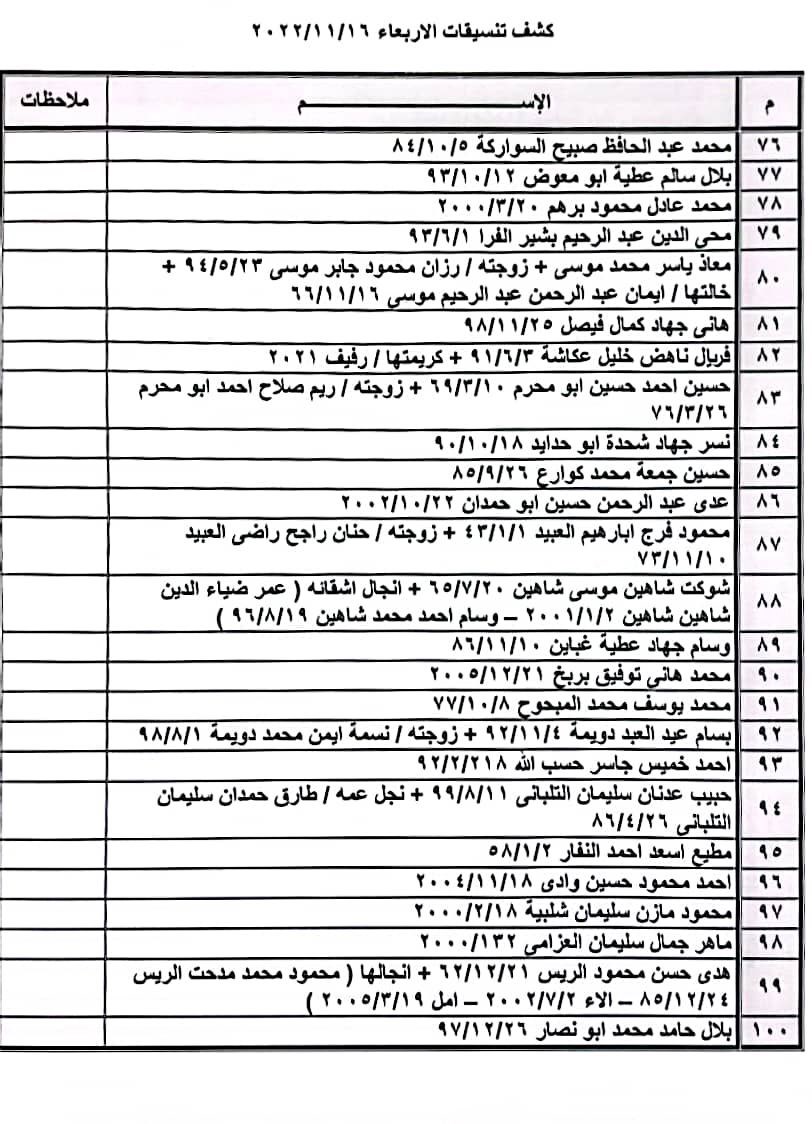 كشف تنسيقات الاربعاء ٢٠٢٢/١١/١٦
م الإســـــــــــــــــم ملاحظات
٧٦ محمد عبد الحافظ صبيح السواركة ٨٤/١٠/٥
٧٧ بلال سالم عطية ابو معوض ٩٣/١٠/١٢
٧٨ محمد عادل محمود برهم ٢٠٠٠/٣/٢٠
٧٩ محى الدين عبد الرحيم بشير الفرا ٩٣/٦/١
٨٠ معاذ ياسر محمد موسى + زوجته / رزان محمود جابر موسى ٩٤/٥/٢٣ +
خالتها / ايمان عبد الرحمن عبد الرحيم موسى ٦٦/١١/١٦
٨١ هانى جهاد كمال فيصل ٩٨/١١/٢٥
٨٢ فريال ناهض خليل عكاشة ٩١/٦/٣ + كريمتها / رفيف ٢٠٢١
٨٣ حسين احمد حسين ابو محرم ٦٩/٣/١٠ + زوجته / ريم صلاح احمد ابو محرم
٧٦/٣/٢٦
٨٤ نسر جهاد شحدة ابو حدايد ٩٠/١٠/١٨
٨٥ حسين جمعة محمد كوارع ٨٥/٩/٢٦
٨٦ عدى عبد الرحمن حسين ابو حمدان ٢٠٠٢/١٠/٢٢
٨٧ محمود فرج ابارهيم العبيد ٤٣/١/١ + زوجته / حنان راجح راضى العبيد
٧٣/١١/١٠
٨٨ شوكت شاهين موسى شاهين ٦٥/٧/٢٠ + انجال اشقائه ( عمر ضياء الدين
شاهين شاهين ٢٠٠١/١/٢ – وسام احمد محمد شاهين ٩٦/٨/١٩ )
٨٩ وسام جهاد عطية غباين ٨٦/١١/١٠
٩٠ محمد هانى توفيق بربخ ٢٠٠٥/١٢/٢١
٩١ محمد يوسف محمد المبحوح ٧٧/١٠/٨
٩٢ بسام عيد العبد دويمة ٩٢/١١/٤ + زوجته / نسمة ايمن محمد دويمة ٩٨/٨/١
٩٣ احمد خميس جاسر حسب الله ٩٢/٢/٢١٨
٩٤ حبيب عدنان سليمان التلبانى ٩٩/٨/١١ + نجل عمه / طارق حمدان سليمان
التلبانى ٨٦/٤/٢٦
٩٥ مطيع اسعد احمد النفار ٥٨/١/٢
٩٦ احمد محمود حسين وادى ٢٠٠٤/١١/١٨
٩٧ محمود مازن سليمان شلبية ٢٠٠٠/٢/١٨
٩٨ ماهر جمال سليمان العزامى ٢٠٠٠/١٣٢
٩٩ هدى حسن محمود الريس ٦٢/١٢/٢١ + انجالها ( محمود محمد مدحت الريس
٨٥/١٢/٢٤ – الاء ٢٠٠٢/٧/٢ – امل ٢٠٠٥/٣/١٩ )
١٠٠ بلال حامد محمد ابو نصار ٩٧/١٢/٢٦